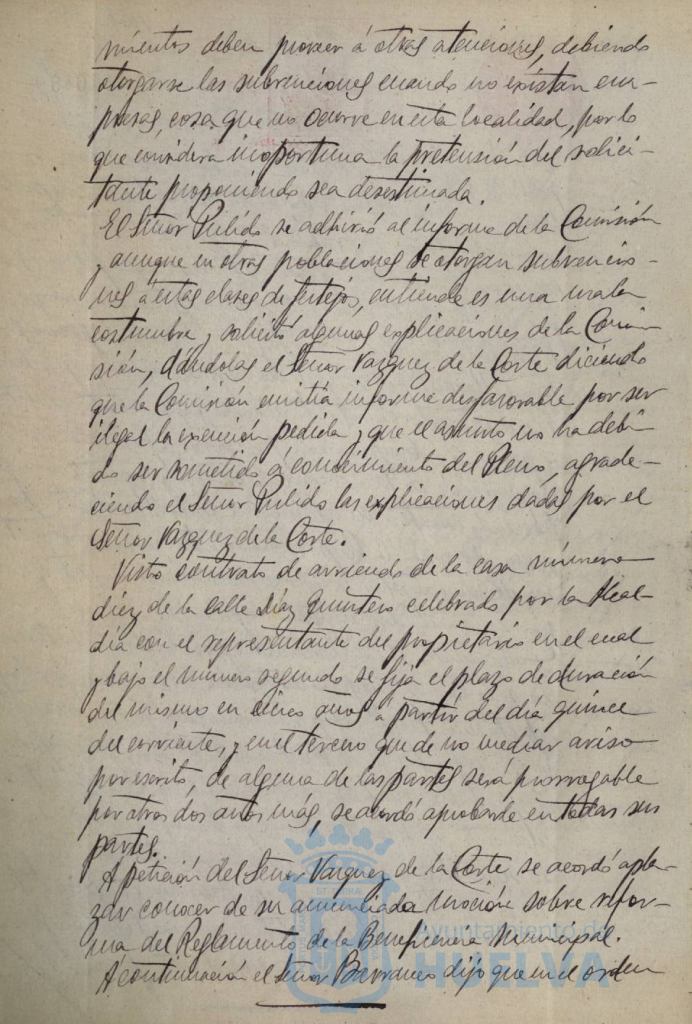 mientos deben proveer á otras atenciones, debiendo
otorgarse las subvenciones cuando no existan em-
presas, cosa que no ocurre en esta localidad, por lo
que considera inoportuna la pretensión del solici-
tante proponiendo sea desestimada.
El Señor Pulido se adhirió al informe de la Comisión
y aunque en otras poblaciones se otorgan subvencio-
nes a estas clases de festejos, entiende es una mala
costumbre y solicitó algunas explicaciones de la Comi-
sión, dándolas el Señor Vazquez de la Corte diciendo
que la Comisión emitía informe desfavorable por ser
ilegal la exención pedida y que el asunto no ha debi-
do ser sometido á conocimiento del Pleno, agrade-
ciendo el Señor Pulido las explicaciones dadas por el
Señor Vazquez de la Corte.
Visto contrato de arriendo de la casa número
diez de la calle Díaz Quintero celebrado por la Alcal-
día con el representante del propietario en el cual
y bajo el número segundo se fija el plazo de duración
del mismo en cinco años a partir del día quince
del corriente, y en el tercero que de no mediar aviso
por escrito, de alguna de las partes será prorrogable
por otros dos años más, se acordó aprobarle en todas sus
partes.
A petición del Señor Vazquez de la Corte se acordó apla-
zar conocer de su anunciada moción sobre refor-
ma del Reglamento de la Beneficencia Municipal.
A continuación el Señor Barranco dijo que en el orden
Ayuntamiento de
HUELVA